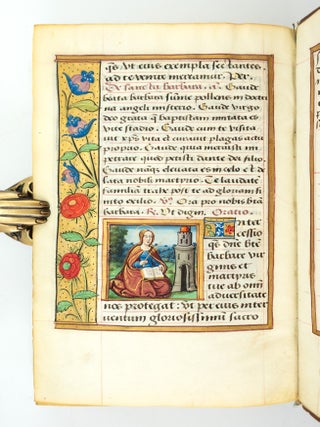 qs vt eius exempla sectantes
ad te venire mereamur. Per.
De sancta barbara. a. Gaude
bata barbara sume pollens in doctri
na angeli misterio. Gaude virgo
deo grata q baptistam imitata es
vite stadio. Gaude cum te visita
uit xps vita et curauit plagas actu
proprio. Gaude quia meruisti im
petrare quod petisti dante dei filio.
Gaude naqz eleuata es in celo et bea
ta nobili martyrio. Te laudante
familia trahe post te ad gloriam fi
nito exilio. V. Ora pro nobis bta
barbara. R. Vt digni. Oratio.
Inter
cessio
qs dne bte
barbare vir
ginis et
martyris
tue ab omi
aduersitate
nos protegat: vt per eius inter
uentum gloriosissimum sacro